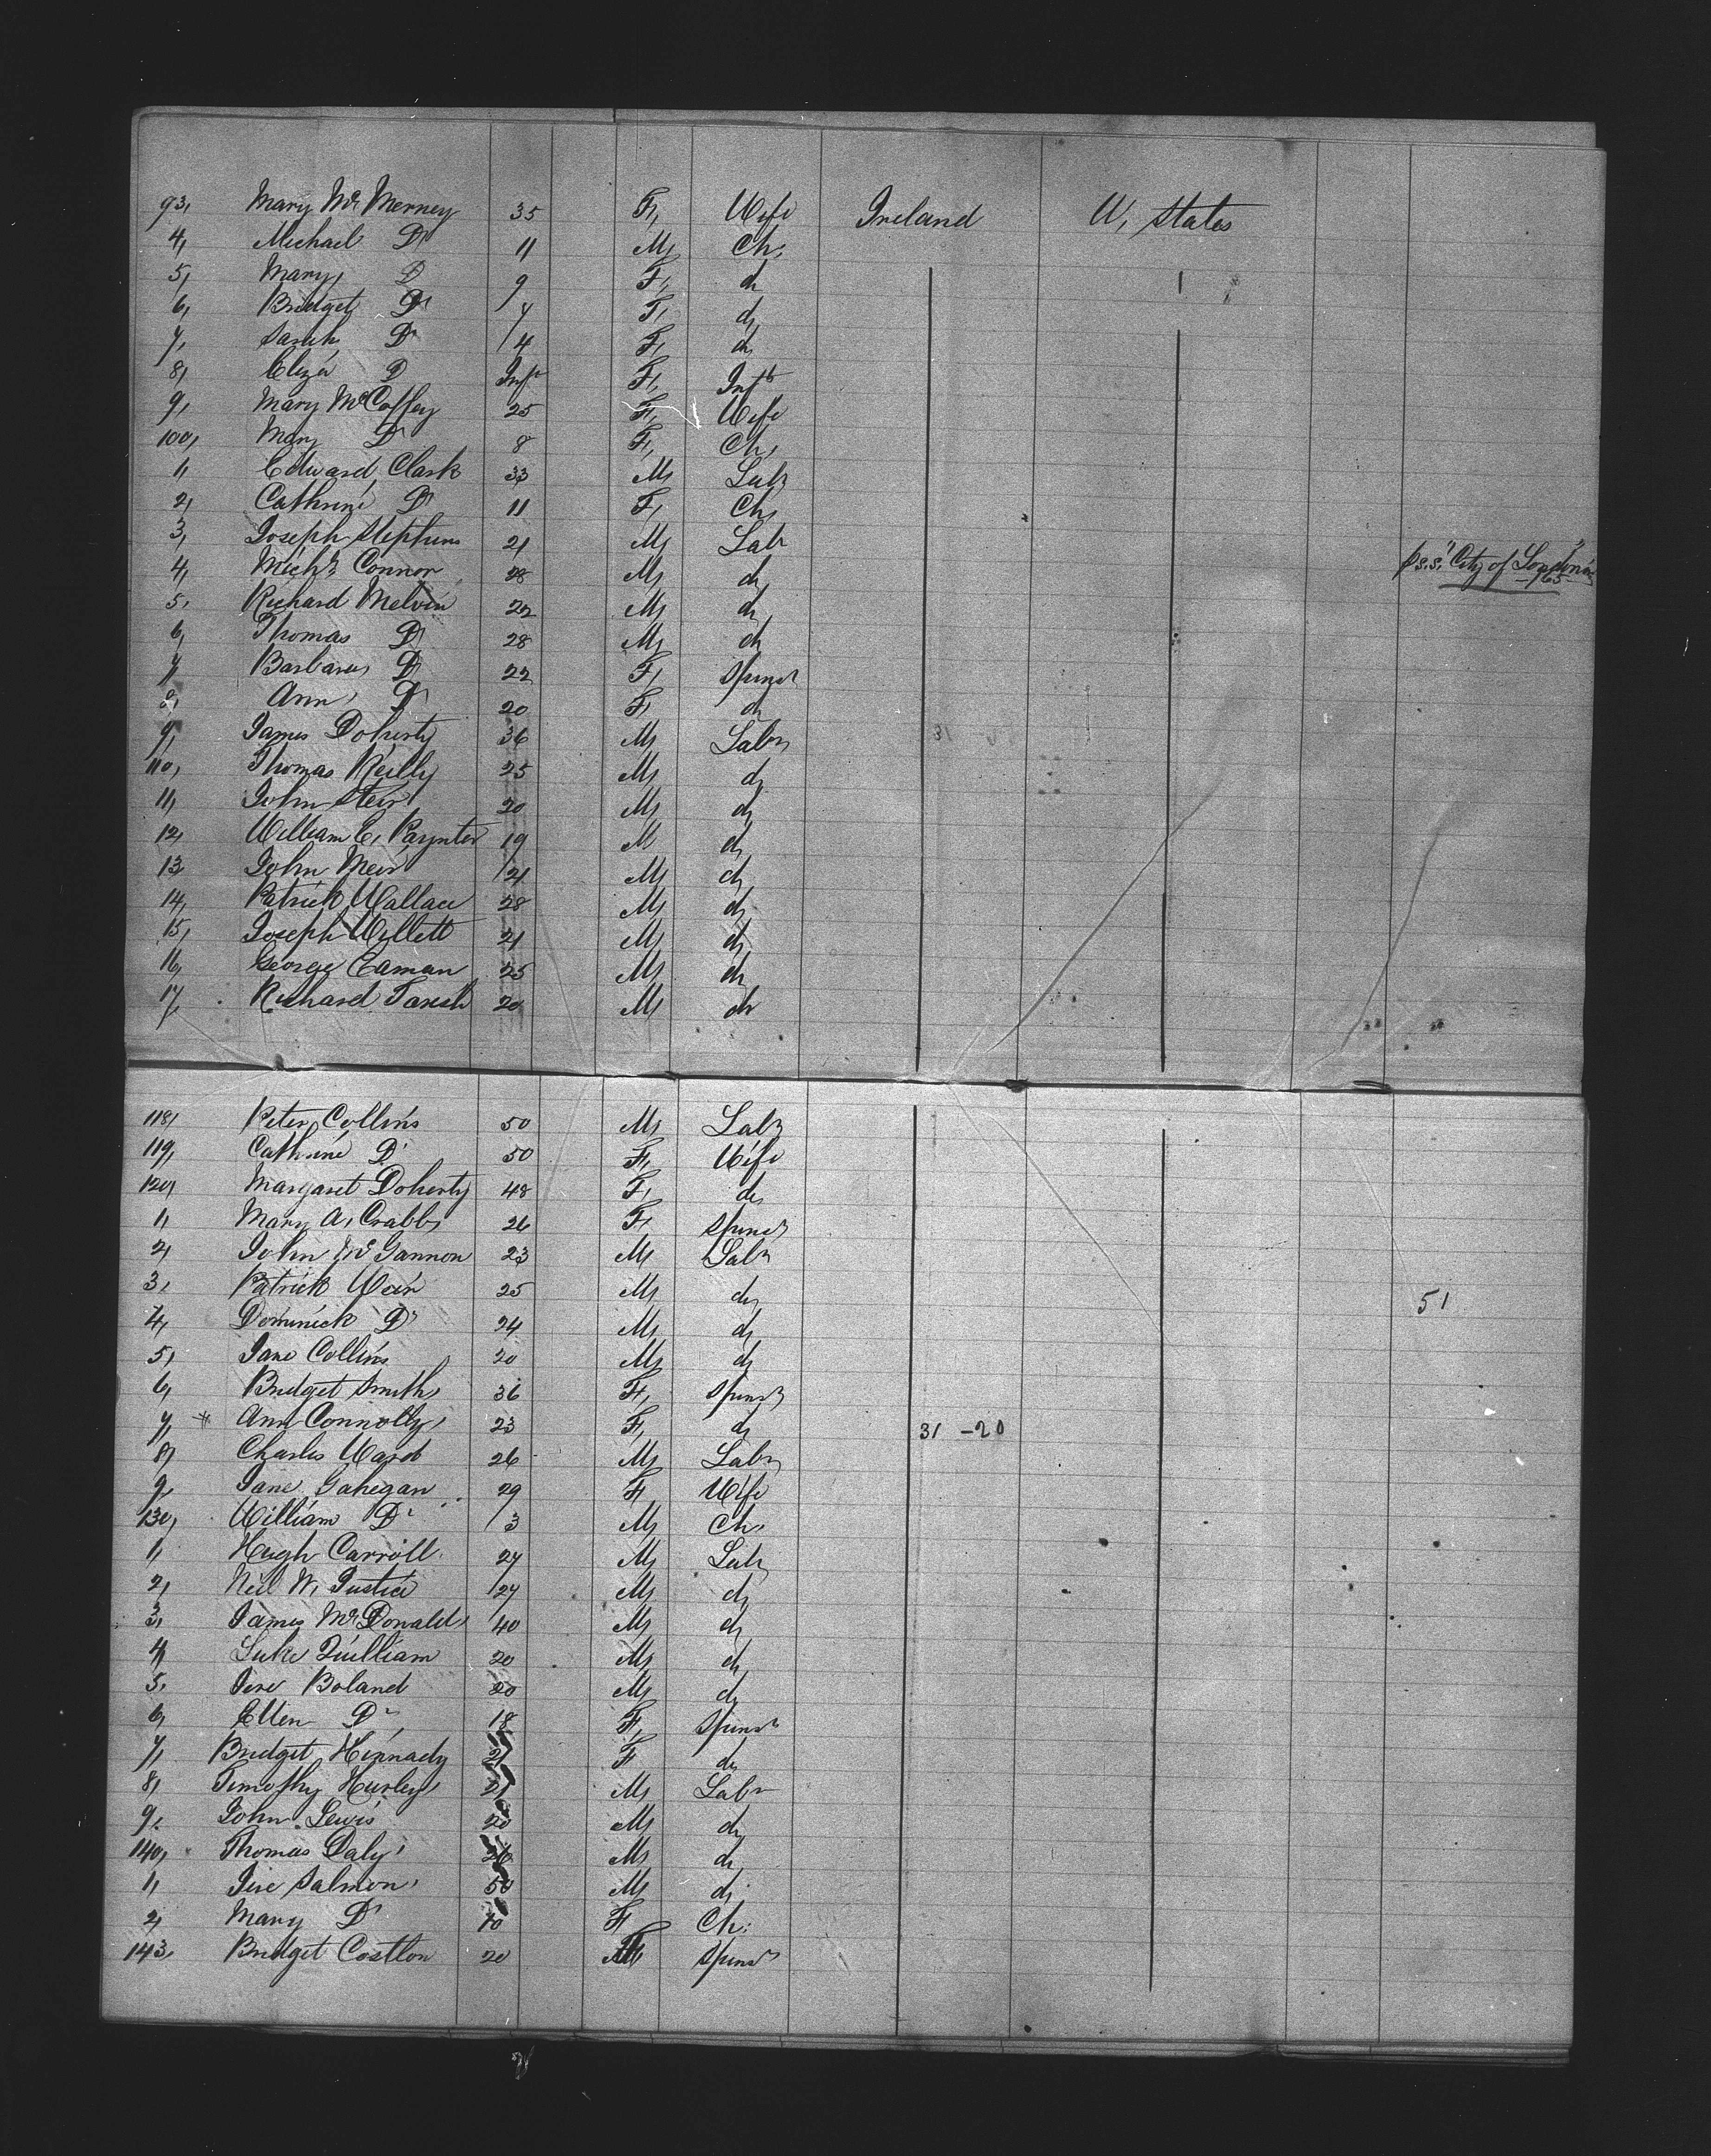 93, Mary McMerney 35 F, Wife Ireland U, States
4, Michael Do 11 M, Ch,
5, Mary, D 9 F, do
6, Bridget Do 7 F, do
7, Sarah Do 4 F, do
8, Eliza D Inft F, Inft
9, Mary McCaffey 25 F, Wife
100, Mary Do 8 F, Ch,
1, Edward Clark 33 M, Labr
2, Cathrine Do 11 F, Ch,
3, Joseph Stephens 21 M, Labr
4, Michl Connor 28 M, do
p s.s. "City of London"
5, Richard Melvin 22 M, do
6, Thomas Do 28 M, do
7, Barbara Do 22 F, Spinsr
8, Ann, Do 20 F, do
9, James Doherty 36 M, Labr
110, Thomas Reilly 25 M, do
11, John 20 M, do
12, William E, Paynter 19 M do
13 John 21 M, do
14, Patrick Wallace 28 M, do
15, Joseph Willett 21 M, do
16, George Eaman 25 M, do
17, Richard 20 M, do
118, Peter Collins 50 M, Labr
119, Cathrine Do 50 F, Wife
120, Margaret Doherty 48 F, do
1, Mary A, Crabb, 26 F, Spinsr
2, John McGannon 23 M, Labr
3, Patrick Weir 25 M, do
51
4, Dominick Do 24 M, do
5, Jane Collins 20 M, do
6, Bridget Smith, 36 F, Spinsr
7, Ann Connolly, 23 F, do 31 - 20
8, Charles Ward 26 M, Labr
9, Jane Gahegan 29 F, Wife
130, William Do 3 M, Ch,
1, Hugh Carroll 27 M, Labr
2, Neil W, Justice 27 M, do
3, James McDonald, 40 M, do
4, Luke Quilliam 20 M, do
5, Jere Boland 20 M, do
6, Ellen Do 18 F, Spinsr
7, Bridget Hennady 21 F do
8, Timothy Hurley, 21 M, Labr
9, John Lewis 20 M, do
140, Thomas Daly, M, do
1, Jere Salmon, 50 M, do
2, Mary Do 10 F Ch:
143, Bridget Costlon 20 F Spinsr